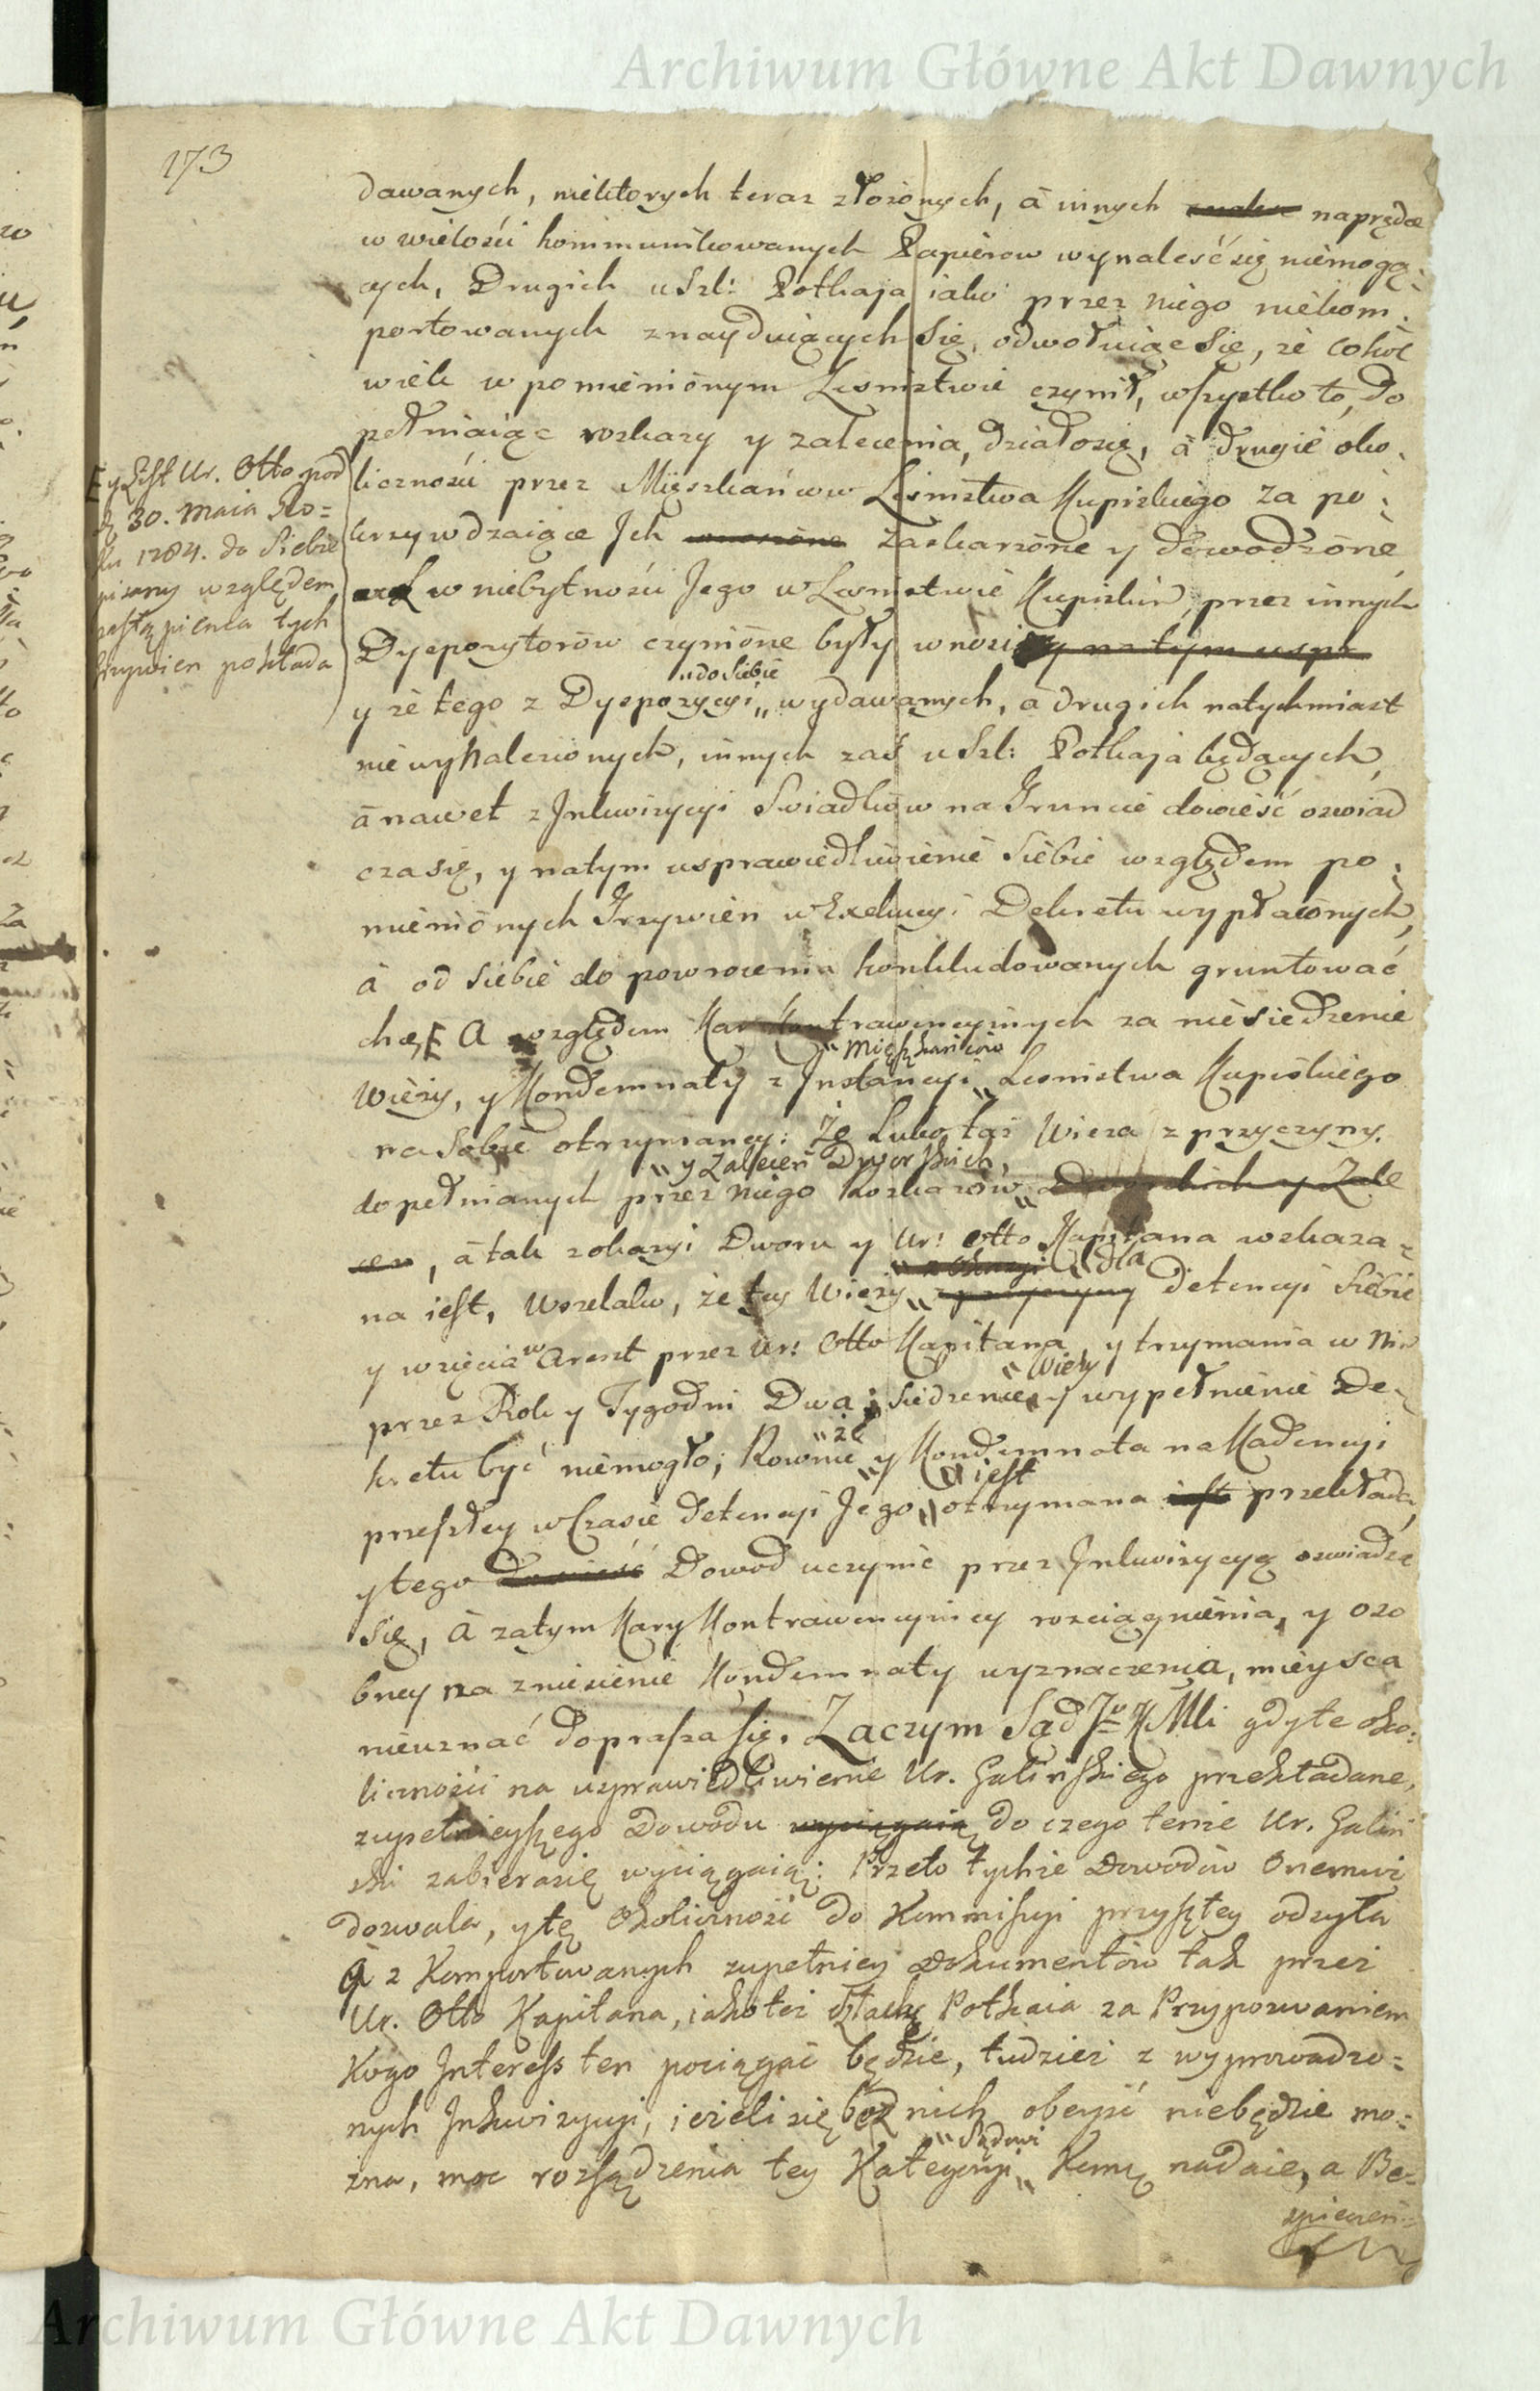 Archiwum Główne Akt Dawnych
173
dawanych, niektorych teraz złożonych, â innych naprędce
w wielości kommunikowanych Papierow wynaleśćsię niemogą:
cych, Drugich u Szl: Potkaja iako przez niego niekom:
portowanych znayduiących Się, odwołuiąc Się, że cokol
wiek w pomienionym Lesnictwie czynił, wszystko to, do
pełniaiąc rozkazy y zalecenia, działosię, â drugie oko:
liczności przez Mięszkańcow Lesnictwa Kupiskiego za po:
krzywdzaiące Jch zaskarżone y dowodzone
w niebytności Jego w Lesnictwie Kupiskim, przez innych
Dyspozytorów czynione były wnosi y na tym uspr
y że tego z Dyspozycyi „do siebie„ wydawanych, a drugich natychmiast
nie wynalezionych, innych zaś u Szl: Potkaja będących,
â nawet z Jnkwizycyi Swiadków na Gruncie dowieść oswiad
cza się, y natym usprawiedliwienie Siebie względem po:
mienionych Grzywien w Exekucyi Dekretu wypłaconych,
â od siebie do powrocenia konkludowanych gruntować
chce, A względem Kar Kontrawencyinych za niesiedzenie
Wieży, y Kondemnaty z Jnstancyi „Mięszkańców„ Lesnictwa Kupiskiego
na sobie otrzymaney: Że Lubo taż Wieza z przyczyny
dopełnianych przez niego Rozkazów „y Zaleceń Dworskich, Dworskich y Zale
cen, â tak z okazyi Dworu y Ur: Otto Kapitana wskaza=
na iest, Wszelako, że tey Wieży „dla z przyczyny Detencyi Siebie
y wzięcia w Areszt przez Ur: Otto Kapitana, y trzymania w Nim
przez Rok y Tygodni Dwa; siedzenie „Wieży y wypełnienie De=
kretu być niemogło; Rownie „że„ y Kondemnata na Kadencyi
przeszłey w Czasie Detencyi Jego „iest„ otrzymana iest przekłada,
y tego dowieść Dowod uczynić przez Jnkwizycyą oswiadcza
się, â zatym Kary Kontrawencyiney rozciągnienia, y oso
bney na zniesienie Kondemnaty wyznaczenia, mieysca
nieuznać dopraszasię. Zaczym Sąd JoKMci gdy te oko:
liczności na usprawiedliwienie Ur. Galinskiego przekładane,
zupełnieyszego Dowodu wyciągaią do czego tenże Ur. Galin
ski zabierasię wyciągaią: Przeto tychże Dowodow Onemuż
dozwala, y tę Okoliczność do Kommissyi przyszłey odsyła
A z Komportowanych zupełniey Dokumentow tak przez
Ur. Otto Kapitana, iako też Szlach: Potkaia za Przypozwaniem
Kogo Jnteress ten pociągać będzie, tudzież z wyprowadzo=
nych Jnkwizycyi, ieżeli się bez nich obeyść niebędzie mo=
zna, moc rozsądzenia tey Kategoryi „Sądowi„ Kommis: nadaie, a Be=
zpieczeń=
y List Ur. Otto pod
d. 30. Maia Ro=
ku 1784. do Siebie
pisany względem
zastąpienia tych
Grzywien pokłada
Archiwum Główne Akt Dawnych